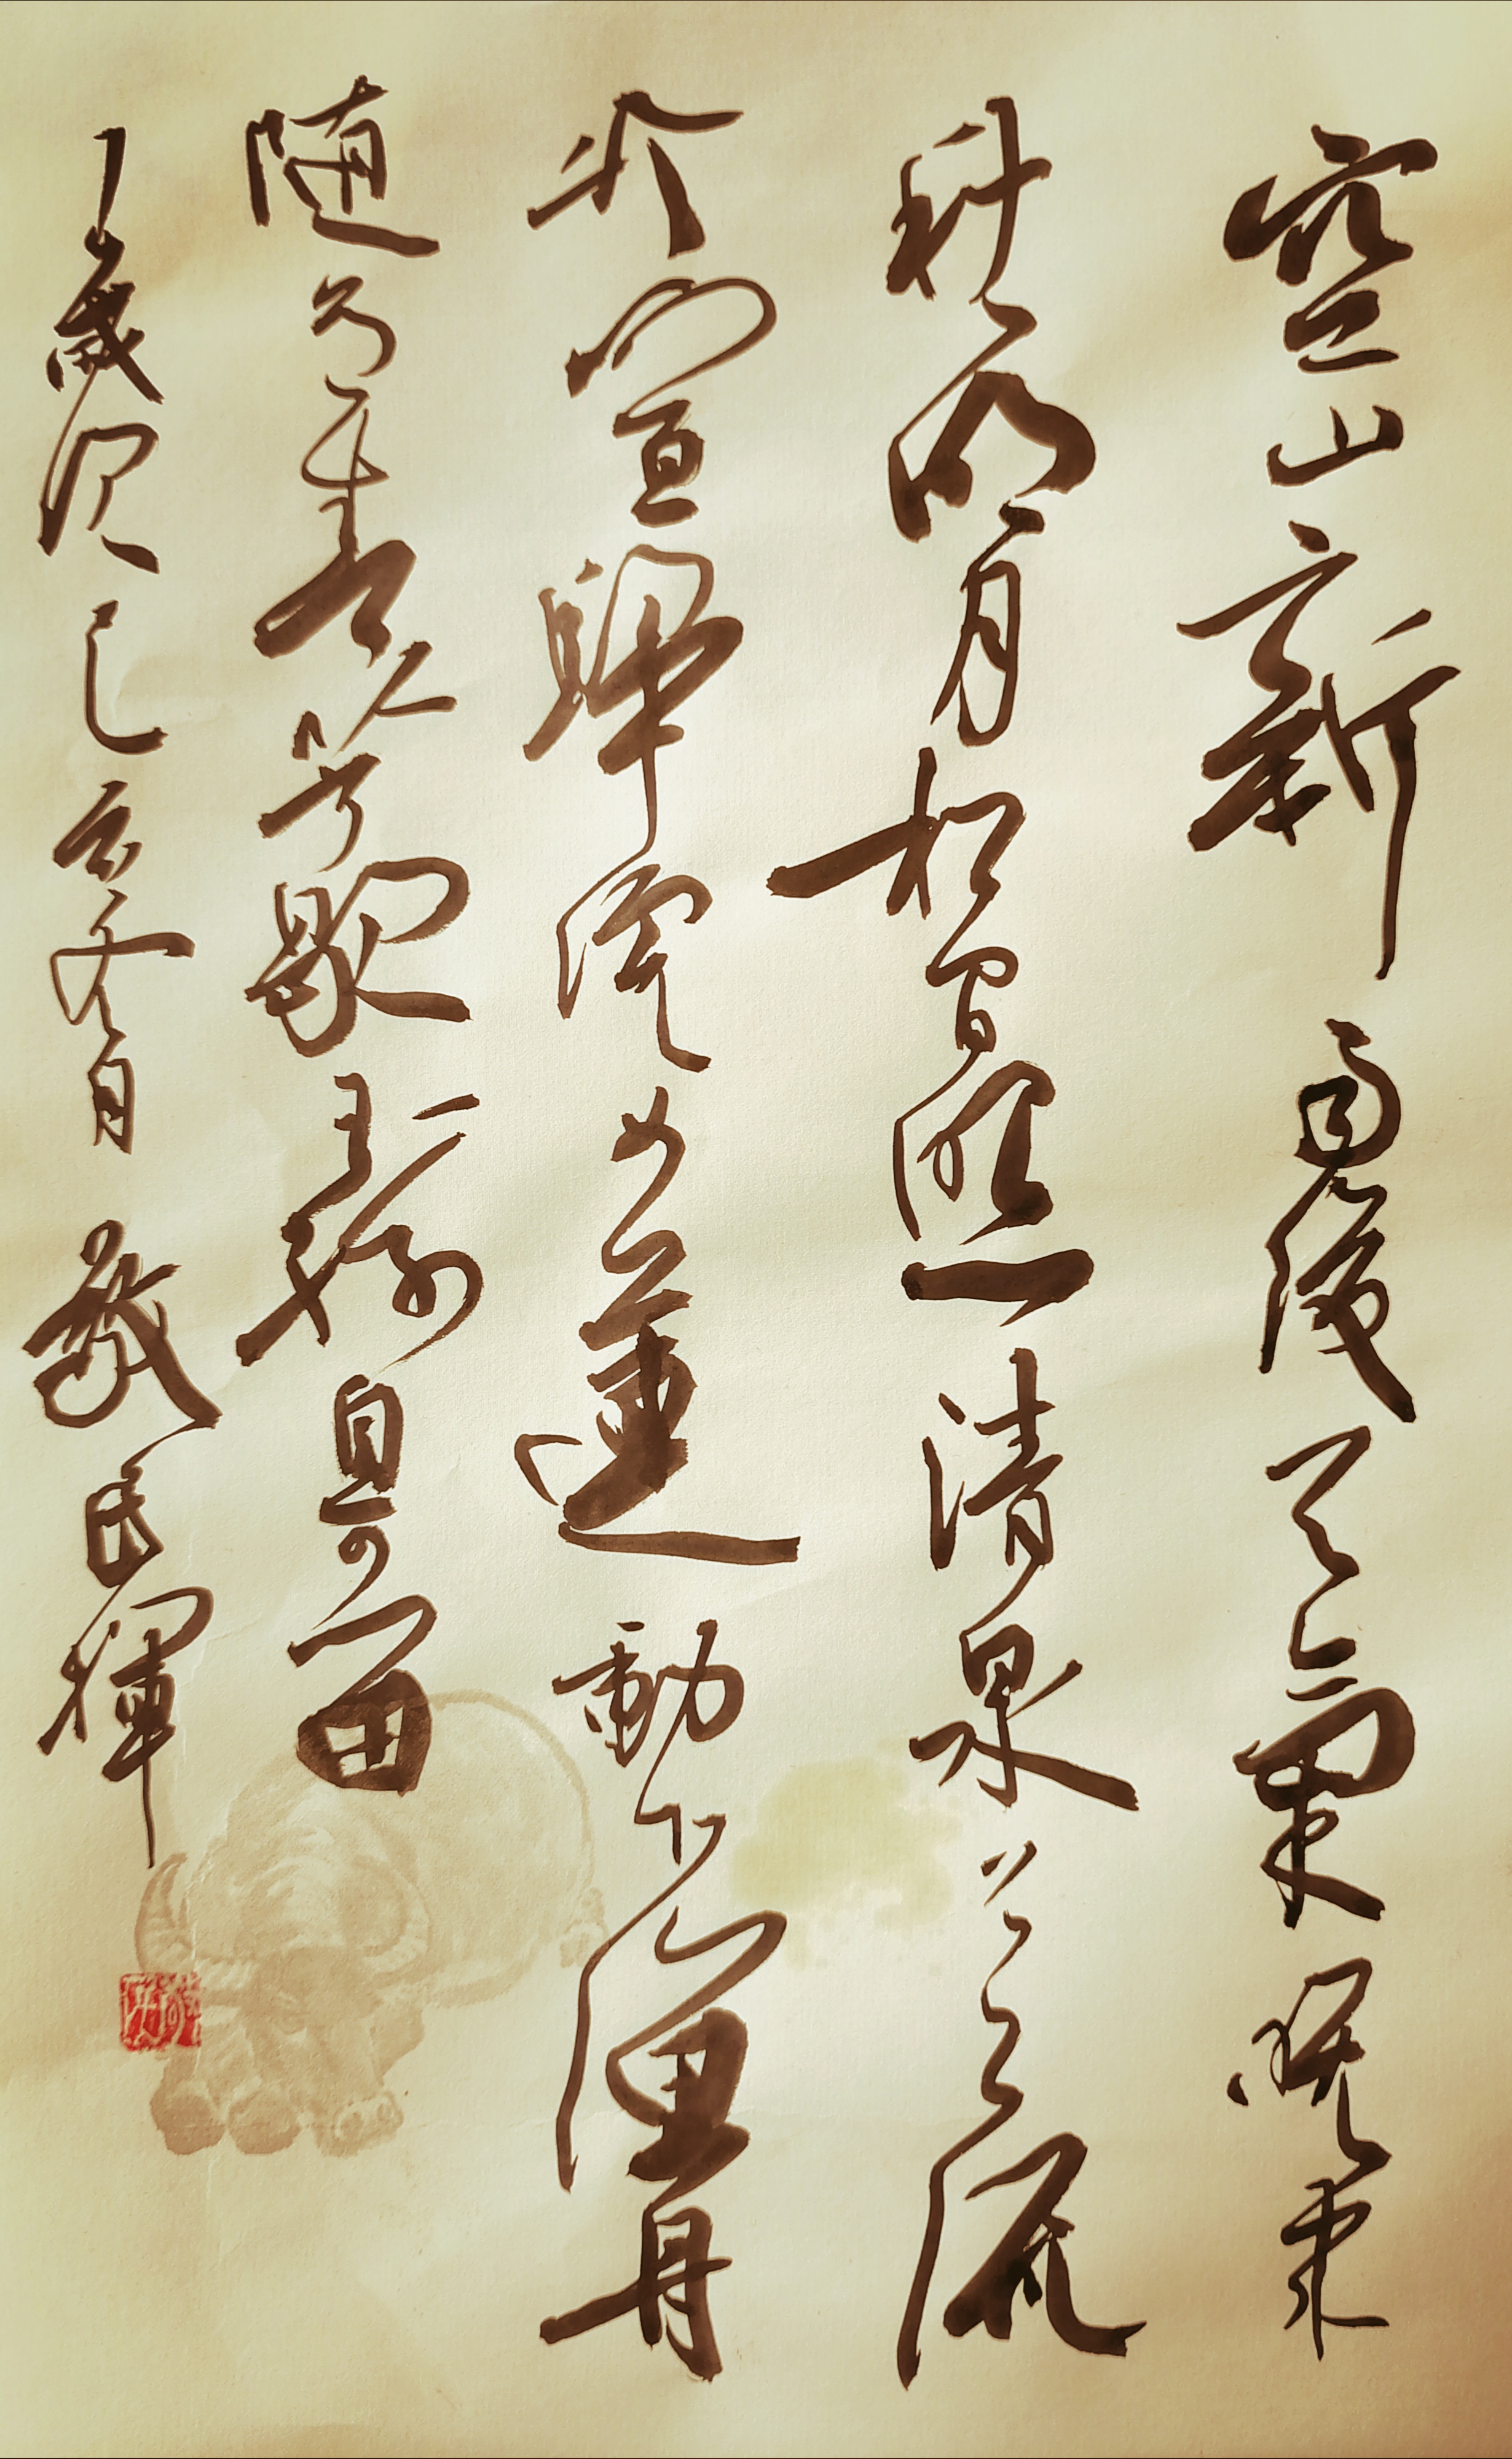 空山新雨後天氣晚來
秋明月松間照清泉石上流
竹喧歸浣女蓮動下漁舟
随意春芳歇王孫自可留
歲次己亥冬月 民輝